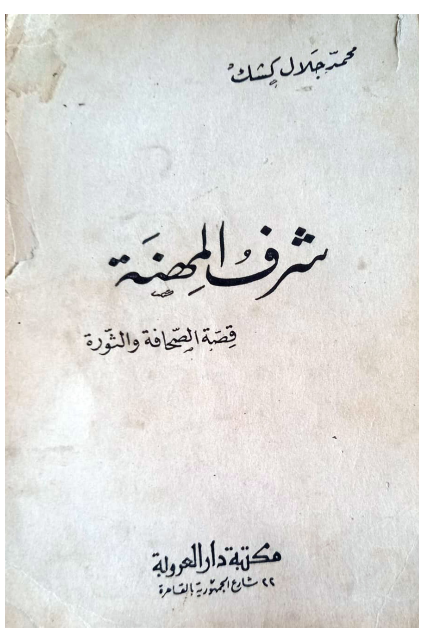 محمّد جَلال كِشك
شرفُ المِهنَة
قِصَة الصّحافة والثّورة
مكتبة دار العروبة
٢٢ شارع الجمهورية بالقاهرة